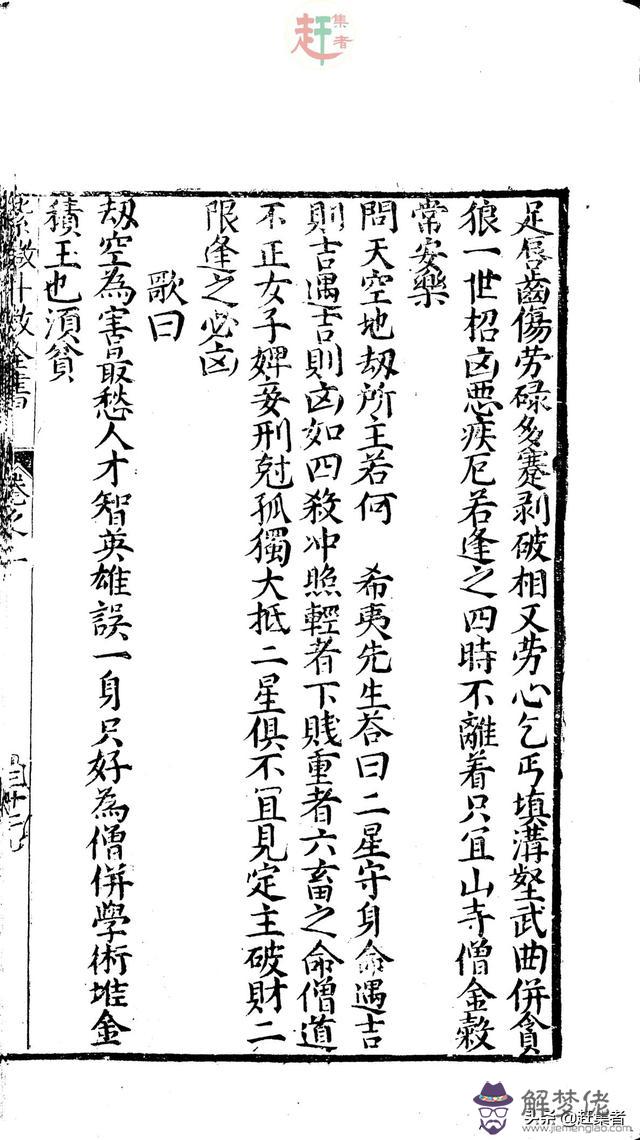 赶集者
足唇齒傷劳碌多蹇剥破相又劳心乞丐填溝壑武曲併貪
狼一世招凶惡疾厄若逢之四時不離着只宜山寺僧金穀
常安樂
問天空地刼所主若何　希夷先生答曰二星守身命遇吉
則吉遇吉則凶如四殺冲照輕者下賎重者六畜之命僧道
不正女子婢妾刑尅孤獨大抵二星俱不宜見定主破財二
限逢之必凶
歌曰
刼空為害最愁人才智英雄誤一身只好為僧併學術堆金
積玉也須貧
紫微斗数全書　卷之一
头条@赶集者
解梦佬
www.jiemenglao.com